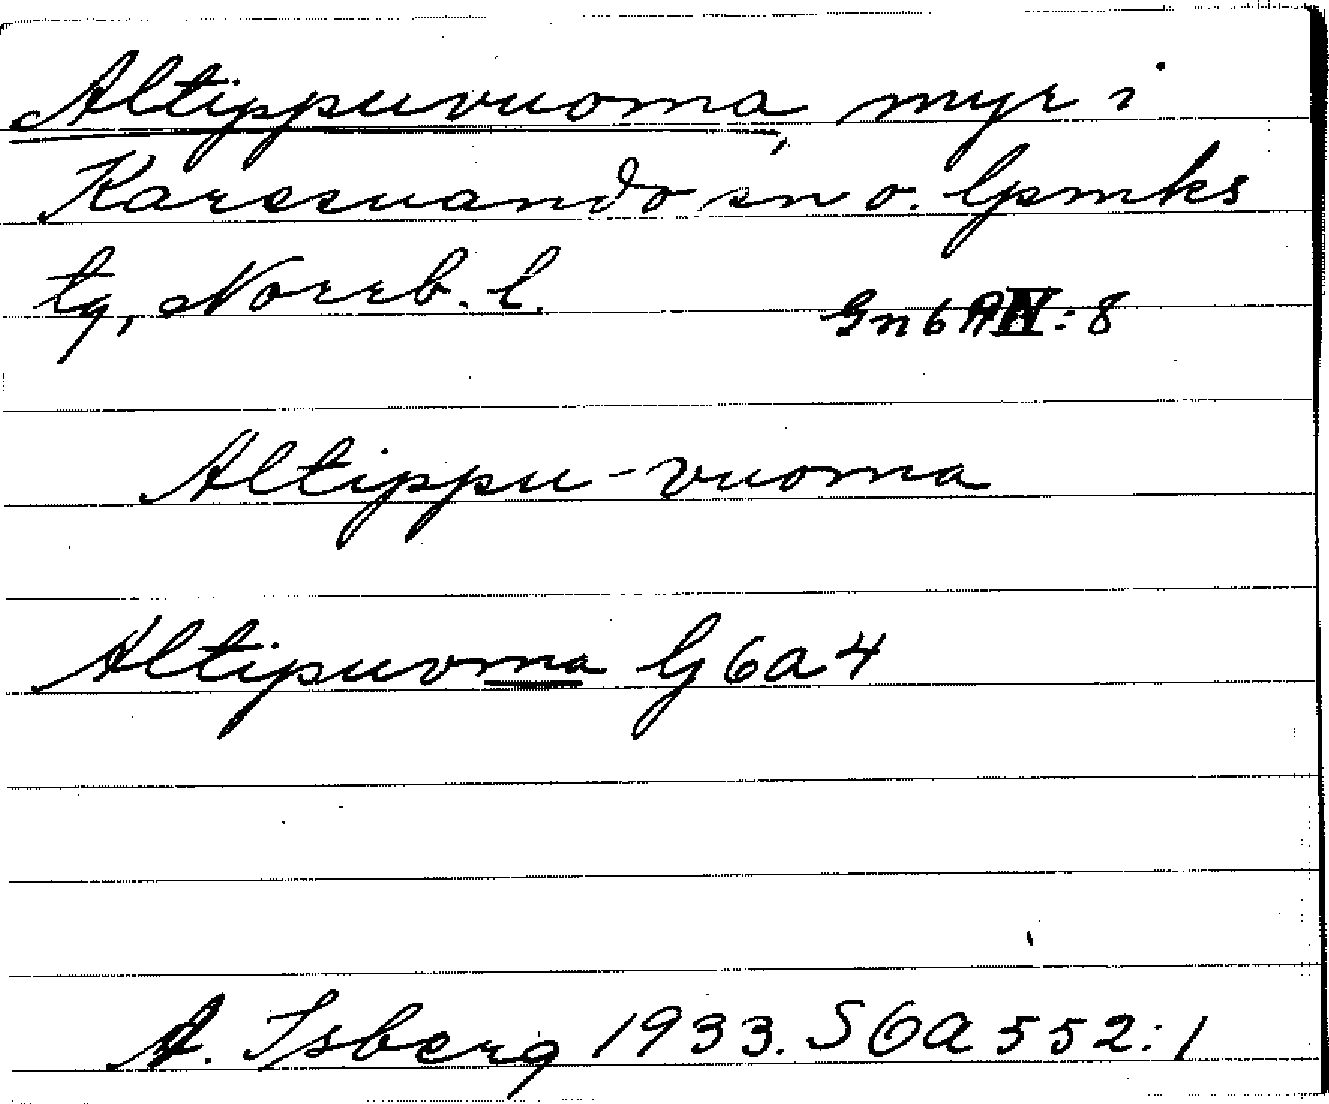 Altippuvuoma, myr i
Karesuando sn o. lpmks
tg, Norrb. l.
Gn 6
:8
Altippu-vuoma
Altipuvma G 6a4
A. Isberg 1933. S6a552:1